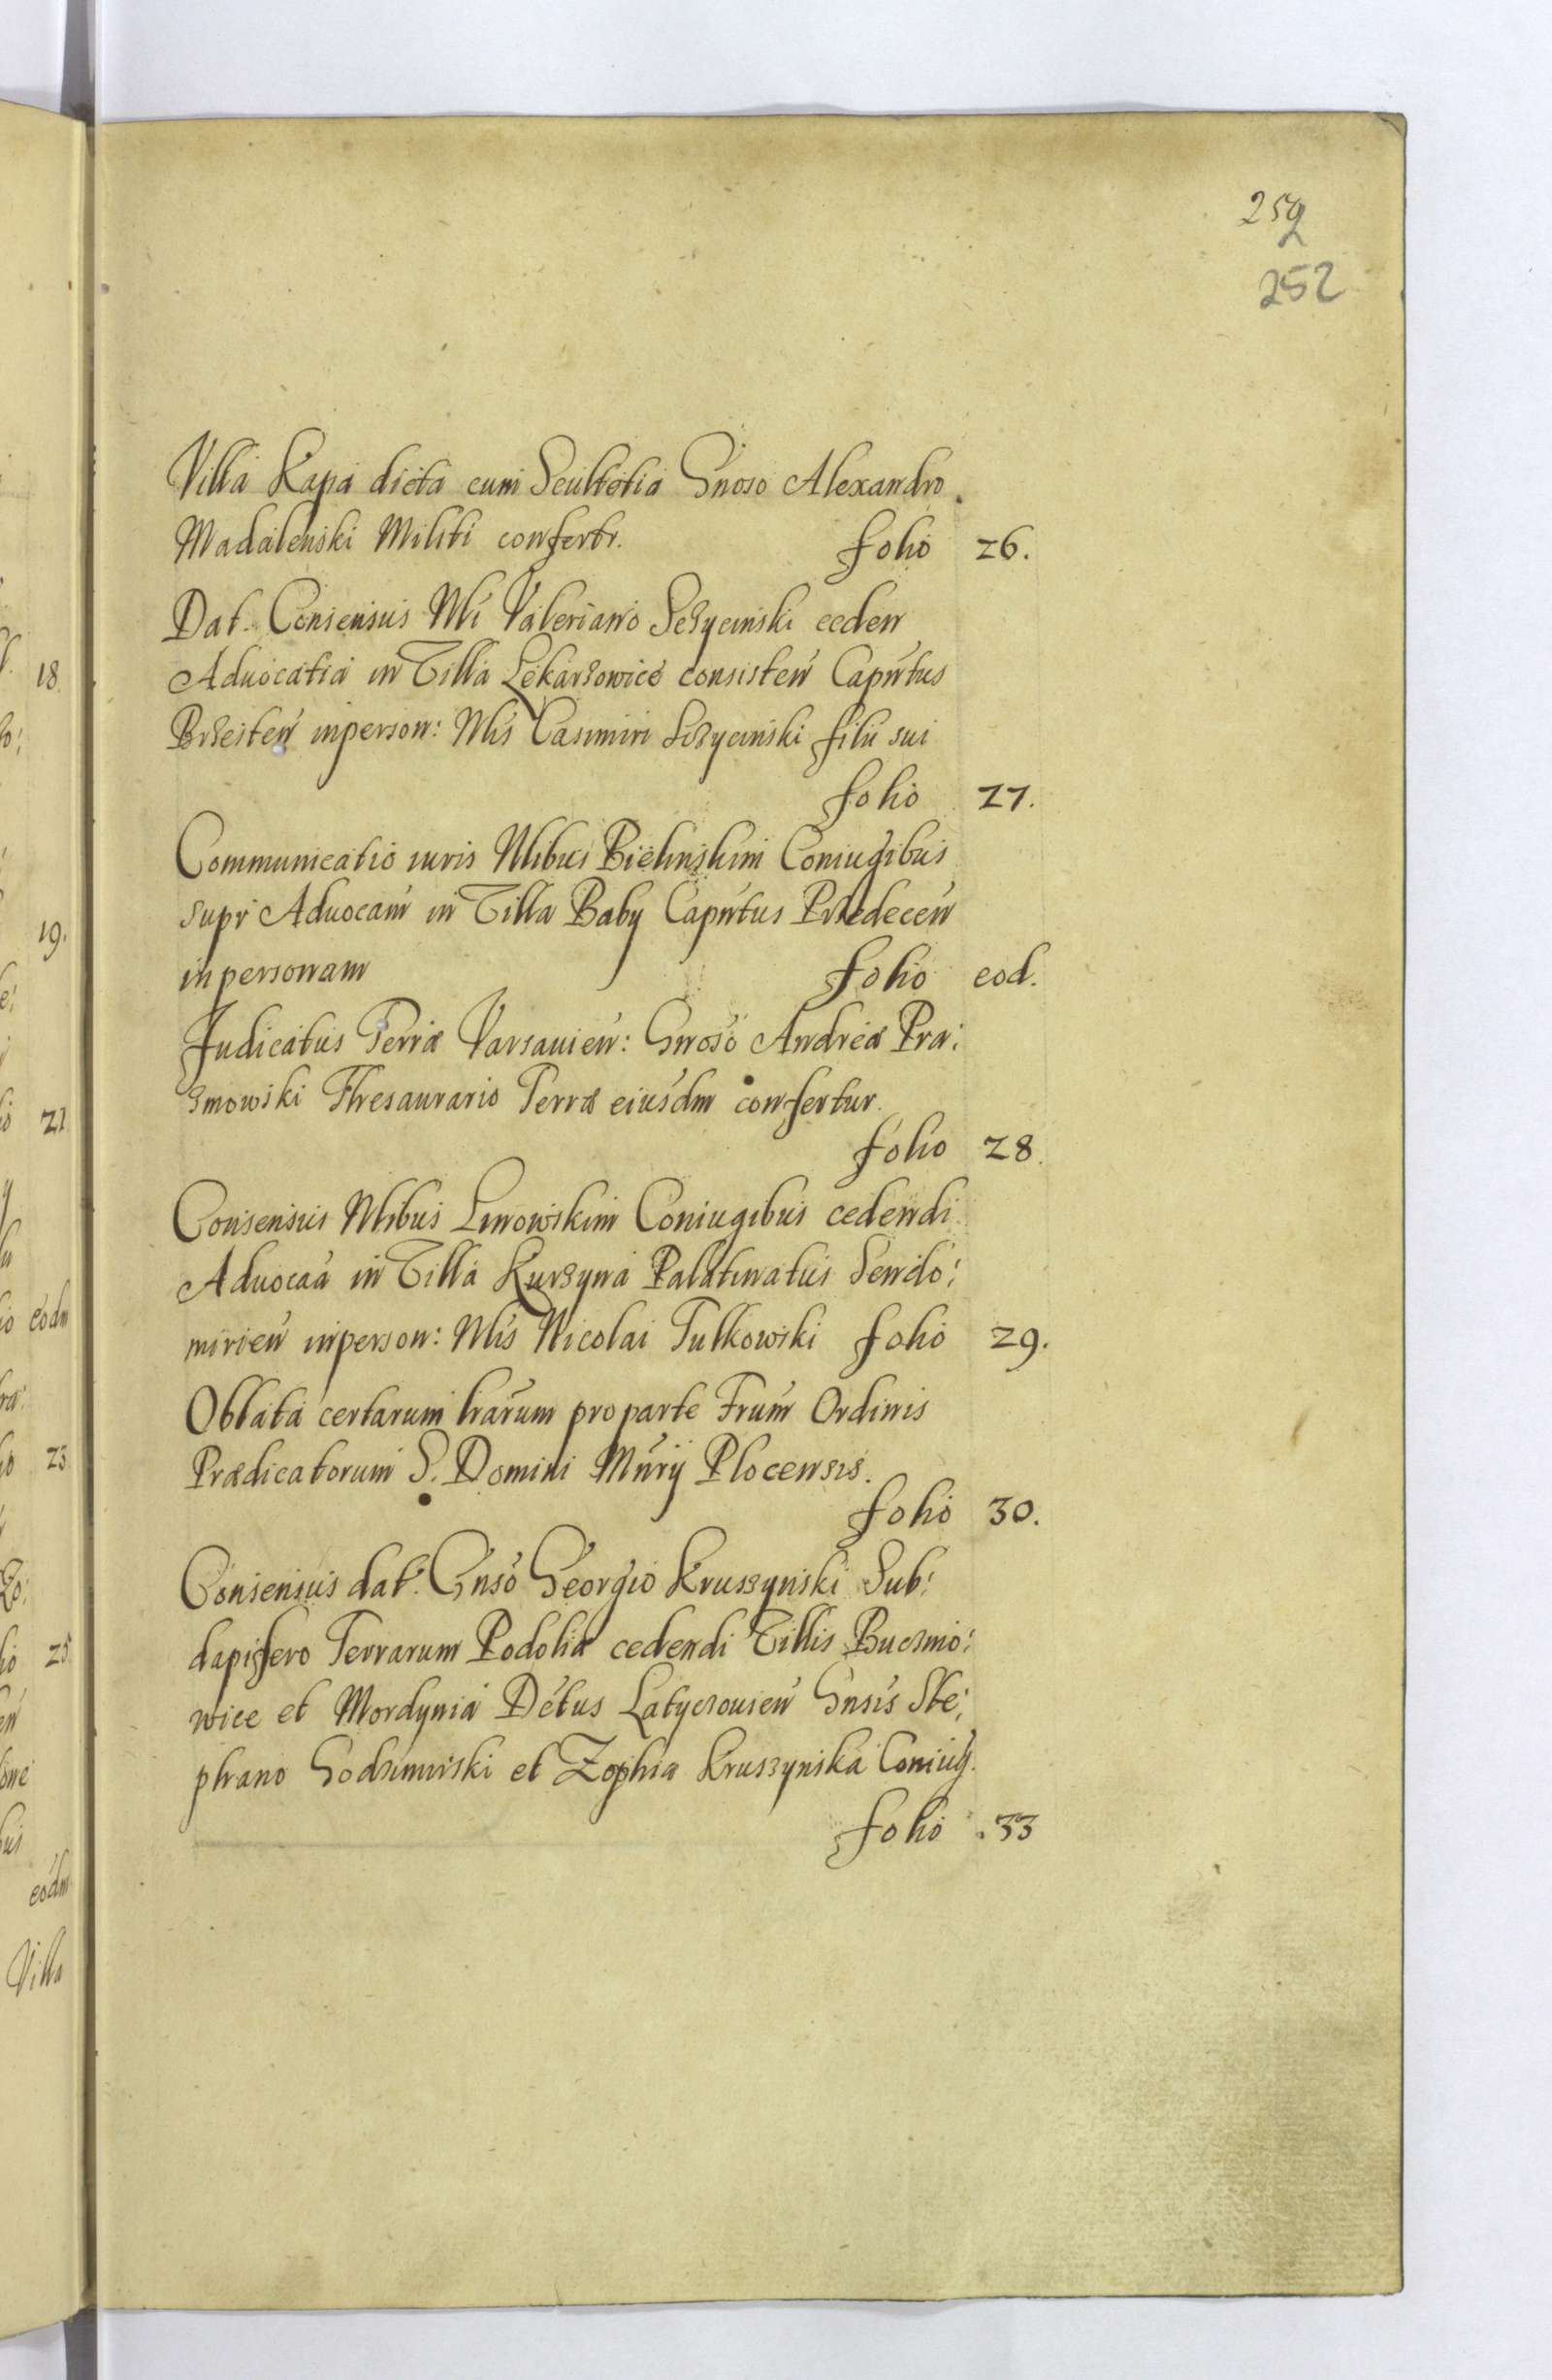 259
252
Villa Kapa dicta cum Scultetia Gnoso Alexandro
Madalenski Militi confertr. folio 26.
Dat. Consensus Nli Valeriano Sczycinski ceden
Aduocatia in Villa Lekarzowice consisten Capntus
Brzesten in person: Nlis Casimiri Sczycinski filii sui
folio 27.
Communicatio iuris Nlibus Bielinskim Coniugibus
supr Aduocam in Villa Baby Capntus Przedecen
in personam folio eod.
Judicatus Terræ Varsauien: Gnoso Andreæ Pra:
zmowski Thesaurario Terræ eiusdm confertur.
folio 28.
Consensus Nlibus Linowskim Coniugibus cedendi
Aduocaa in Villa Kurzyna Palatinatus Sendo:
mirien in person: Nlis Nicolai Tulkowski folio 29.
Oblata certarum lrarum pro parte Frum Ordinis
Prædicatorum S. Domini Mnrij Plocensis.
folio 30.
Consensus dat. Gnso Georgio Kruszynski Sub:
dapifero Terrarum Podoliæ cedendi Villis Bucznio:
wice et Mordynia Detus Latyczouien Gnsis Ste:
phano Godzimirski et Zophia Kruszynska Coniug.
folio 33
18
19.
21
eodm
23
25
eodm
Villa